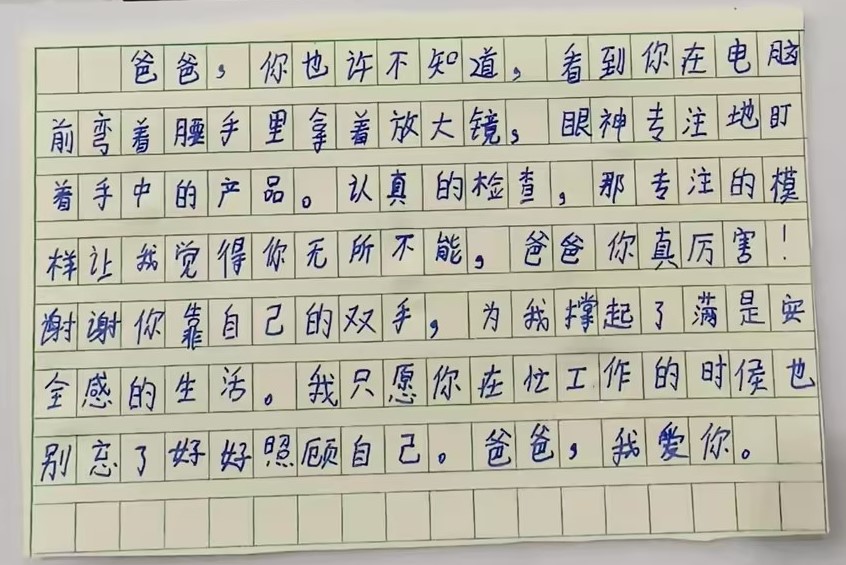 爸爸，你也许不知道，看到你在电脑
前弯着腰手里拿着放大镜，眼神专注地盯
着手中的产品。认真的检查，那专注的模
样让我觉得你无所不能，爸爸你真厉害！
谢谢你靠自己的双手，为我撑起了满是安
全感的生活。我只愿你在忙工作的时候也
别忘了好好照顾自己。爸爸，我爱你。